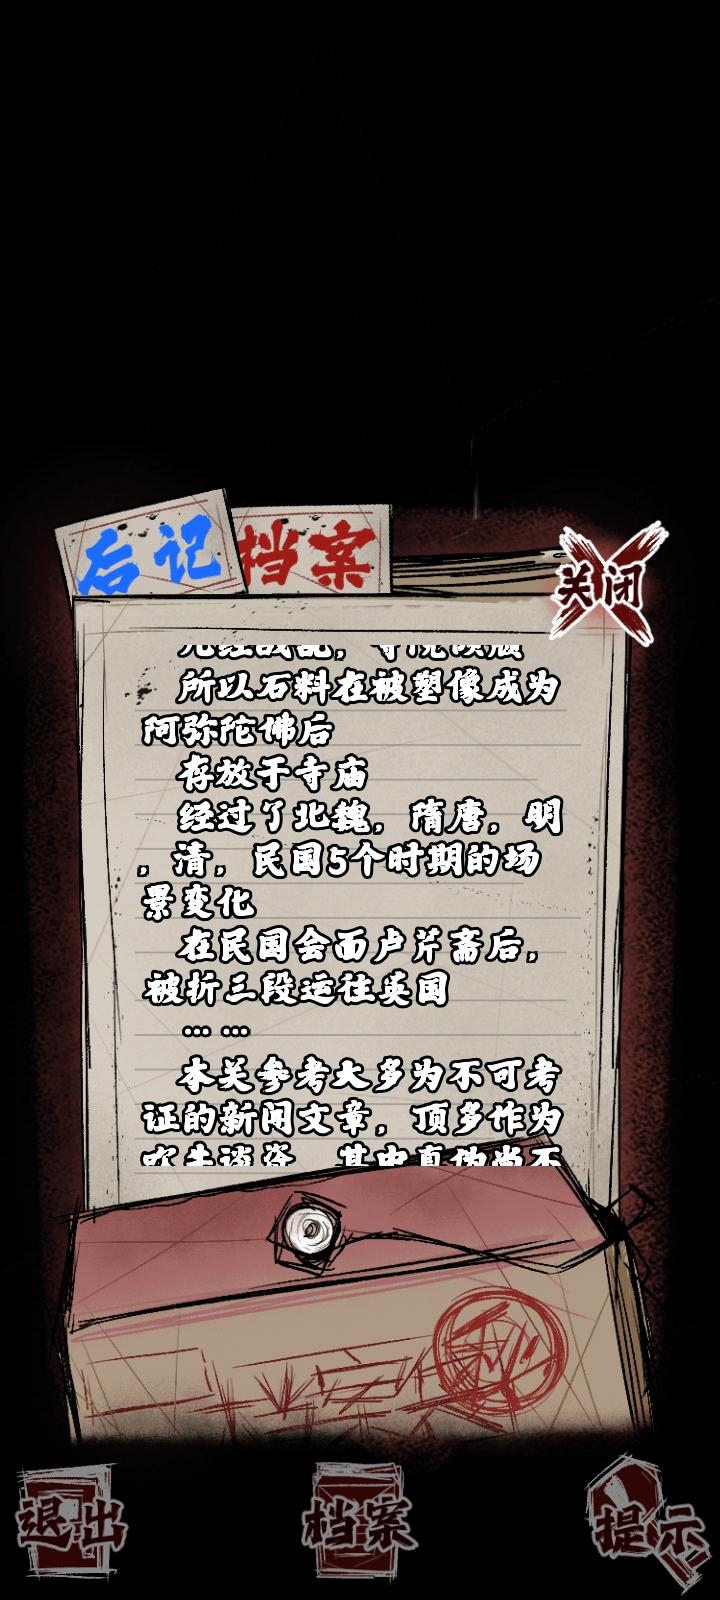 后记
档案
关闭
所以石料在被塑像成为
阿弥陀佛后
存放于寺庙
经过了北魏，隋唐，明
，清，民国5个时期的场
景变化
在民国会面卢芹斋后，
被折三段运往英国
… …
本关参考大多为不可考
证的新闻文章，顶多作为
吹牛谈资，其中真伪尚不
退出
档案
提示